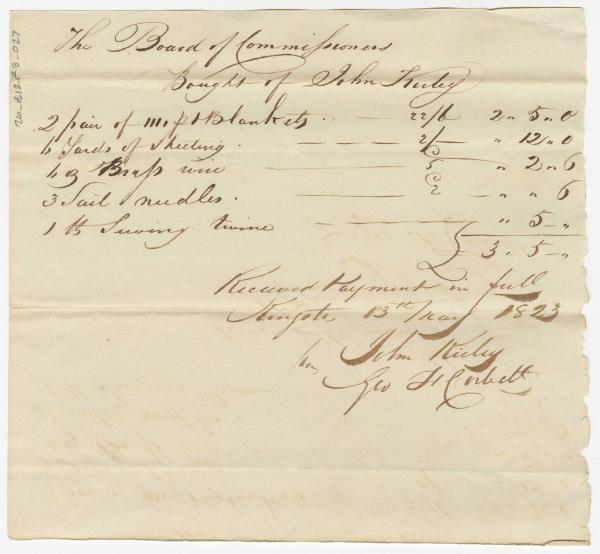 The Board of Commissioners
Bought of John Kirby
2 pair of Blankets .. — 22/6 2 " 5 " 0
6 Yards of Sheeting . — — — 2/ " 12 " 0
6 oz Brass wire — — — 5 " 2 " 6
3 Sail needles . — — 2 " " 6
1 lb Sewing twine — — — " 5 - "
£ 3 " 5 - "
Received Payment in full
Kingston 15th May 1823
John Kirby
per Geo H Corbett